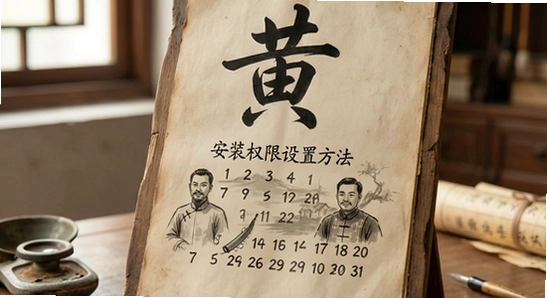 黄
安装权限设置方法
1 2 3 4 1
7 9 5 12
11 22
14 16 14 17 18 20
7 5 29 26 29 29 10 20 31